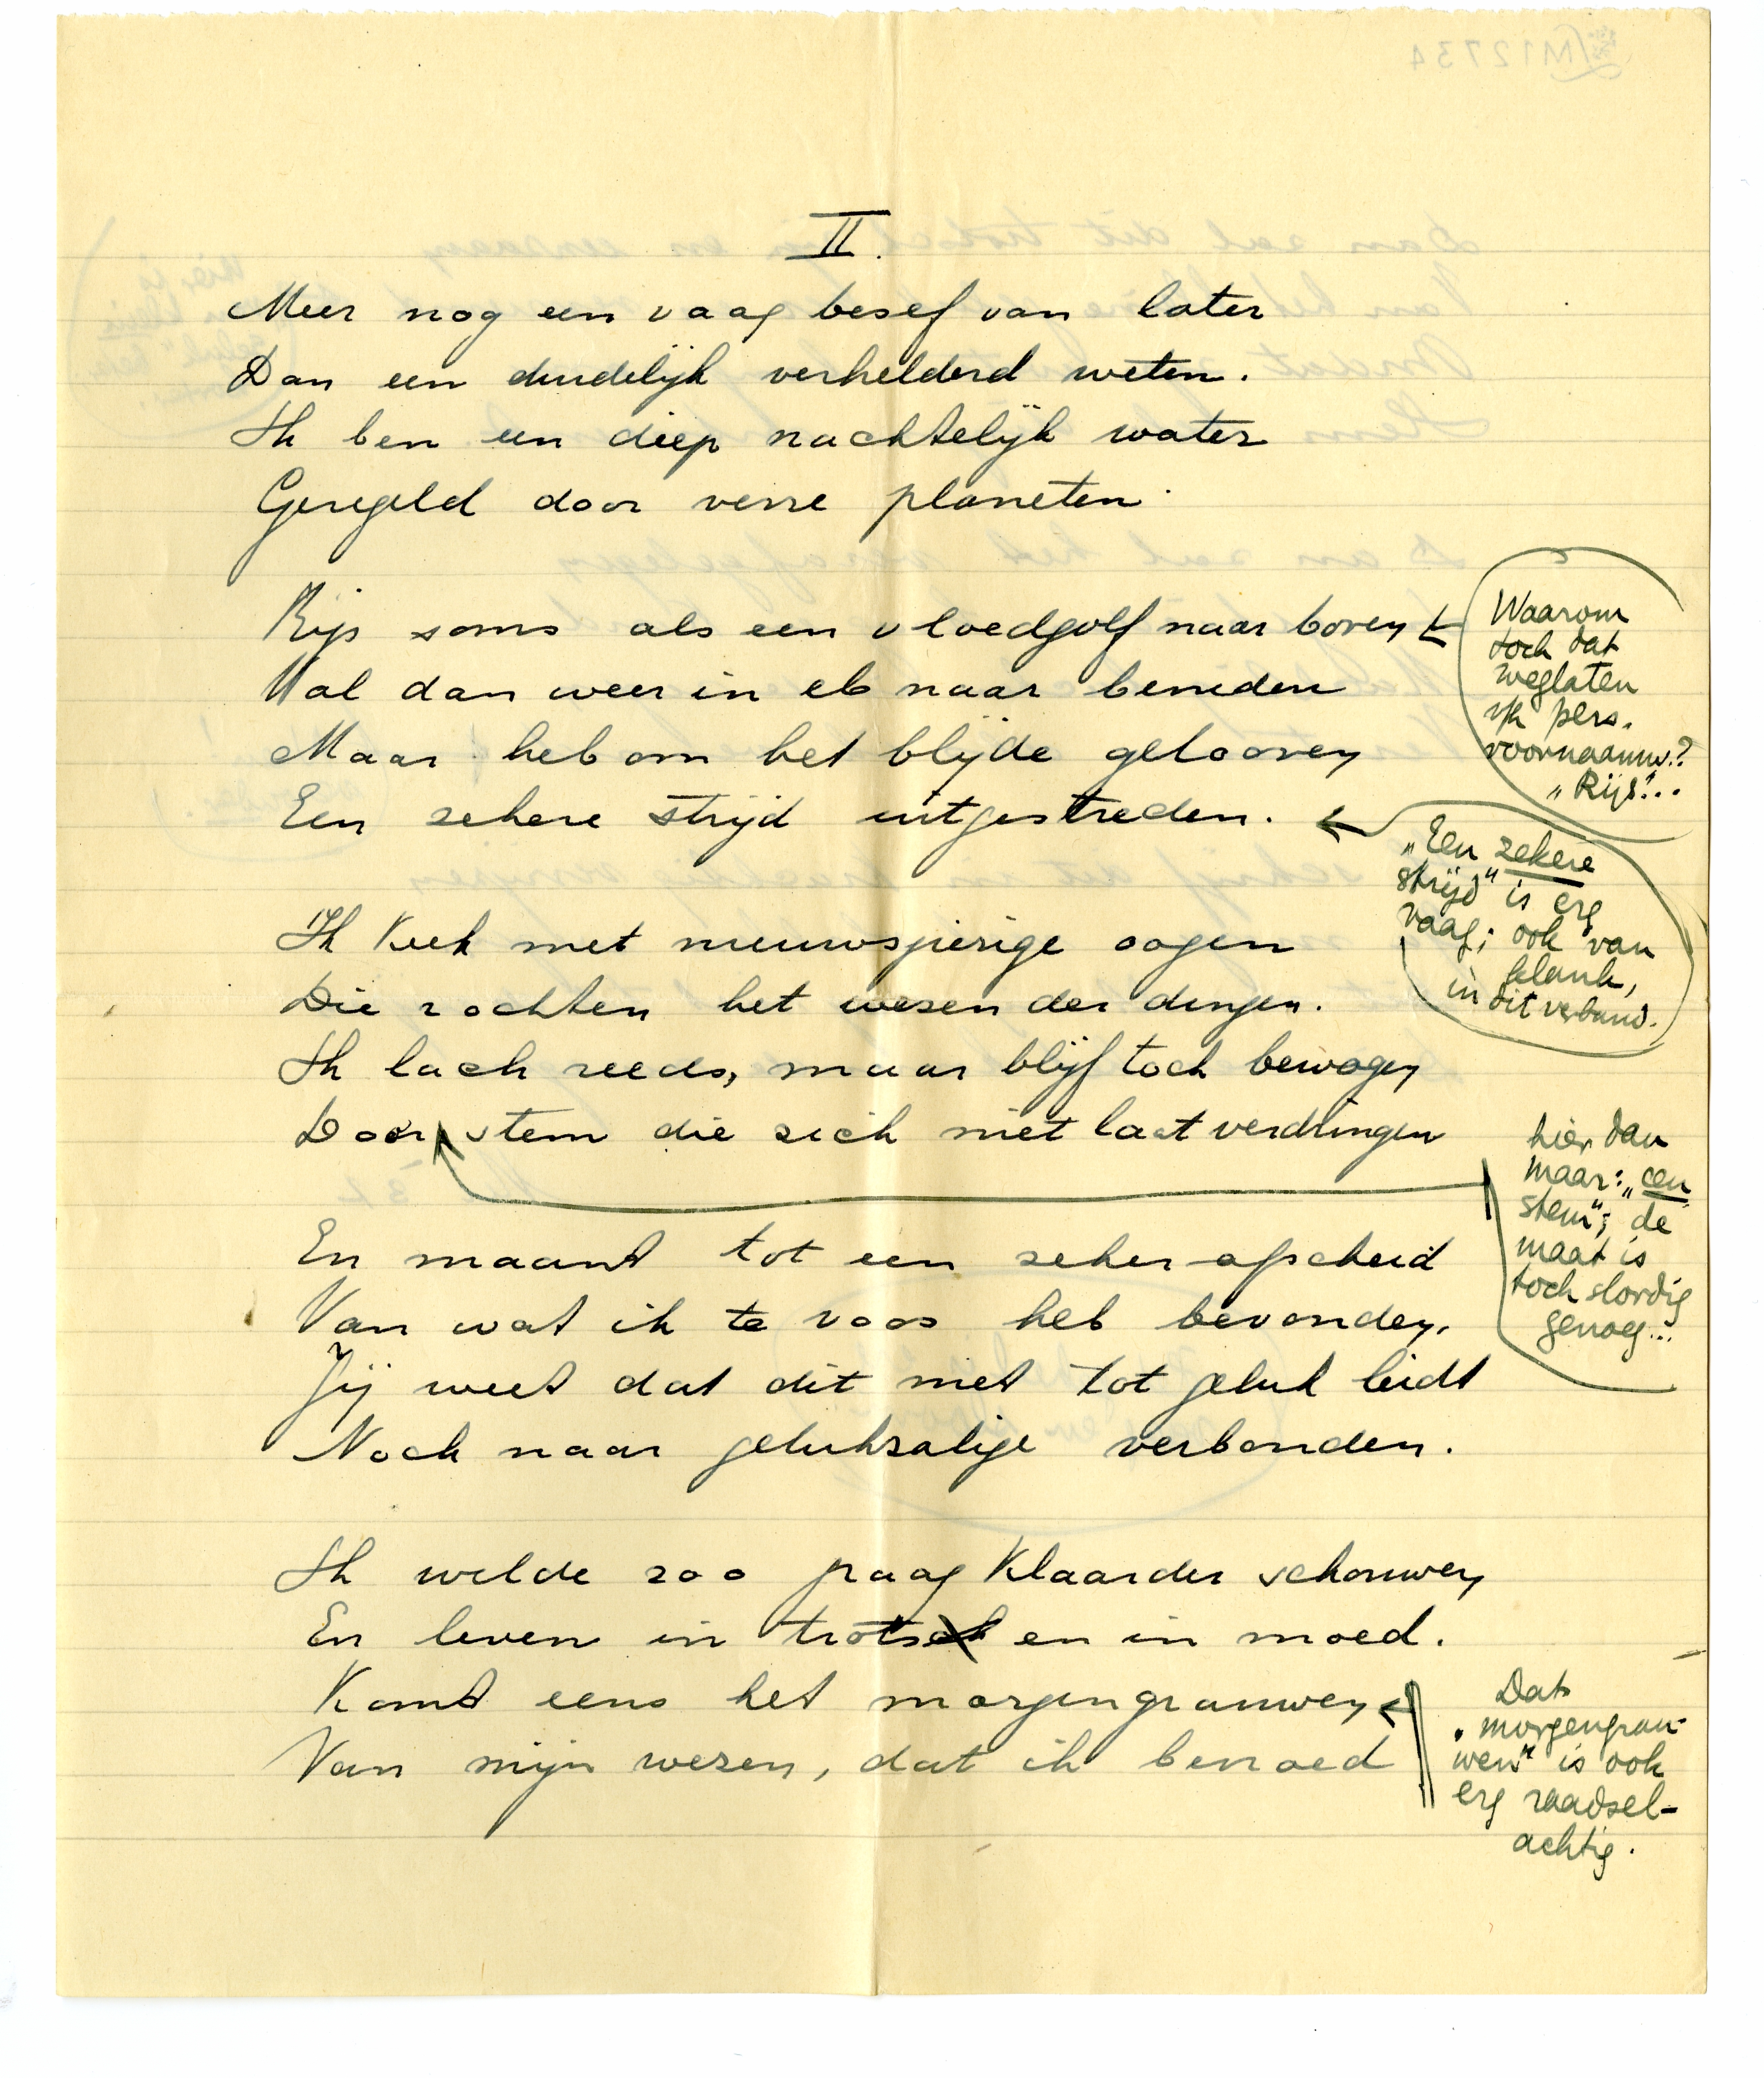 II.
Meer nog een vaag besef van later
Dan een duidelijk verhelderd weten.
Ik ben een diep nachtelijk water
Geregeld door verre planeten.
Rijs soms als een vloedgolf naar boven
Val dan weer in eb naar beneden
Maar heb om het blijde gelooven
Een zekere strijd uitgestreden.
Ik keek met nieuwsgierige oogen
Die zochten het wezen der dingen.
Ik lach reeds, maar blijf toch bewogen
Door stem die zich niet laat verdringen
En maant tot een zeker afscheid
Van wat ik te voos heb bevonden.
Jij weet dat dit niet tot geluk leidt
Noch naar gelukzalige verbonden.
Ik wilde zoo graag klaarder schouwen
En leven in trots en in moed.
Komt eens het morgengrauwen
Van mijn wezen, dat ik bevroed
Waarom
toch dat
weglaten
v/h pers.
voornaamw.?
„Rijs"...
„Een zekere
strijd" is erg
vaag; ook van
klank,
in dit verband.
hier dan
maar: „een
stem"; de
maat is
toch slordig
genoeg...
Dat
„morgengrau-
wen" is ook
erg raadsel-
achtig.
M12734